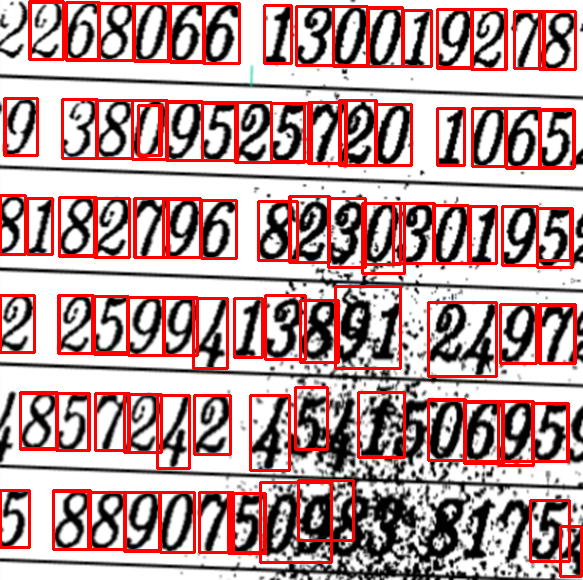 2268066 130019278
9 3809525720 1065
81 82796 8230301955
2 25994 13891 2497
4857242 4541506959
5 8890750983 8175